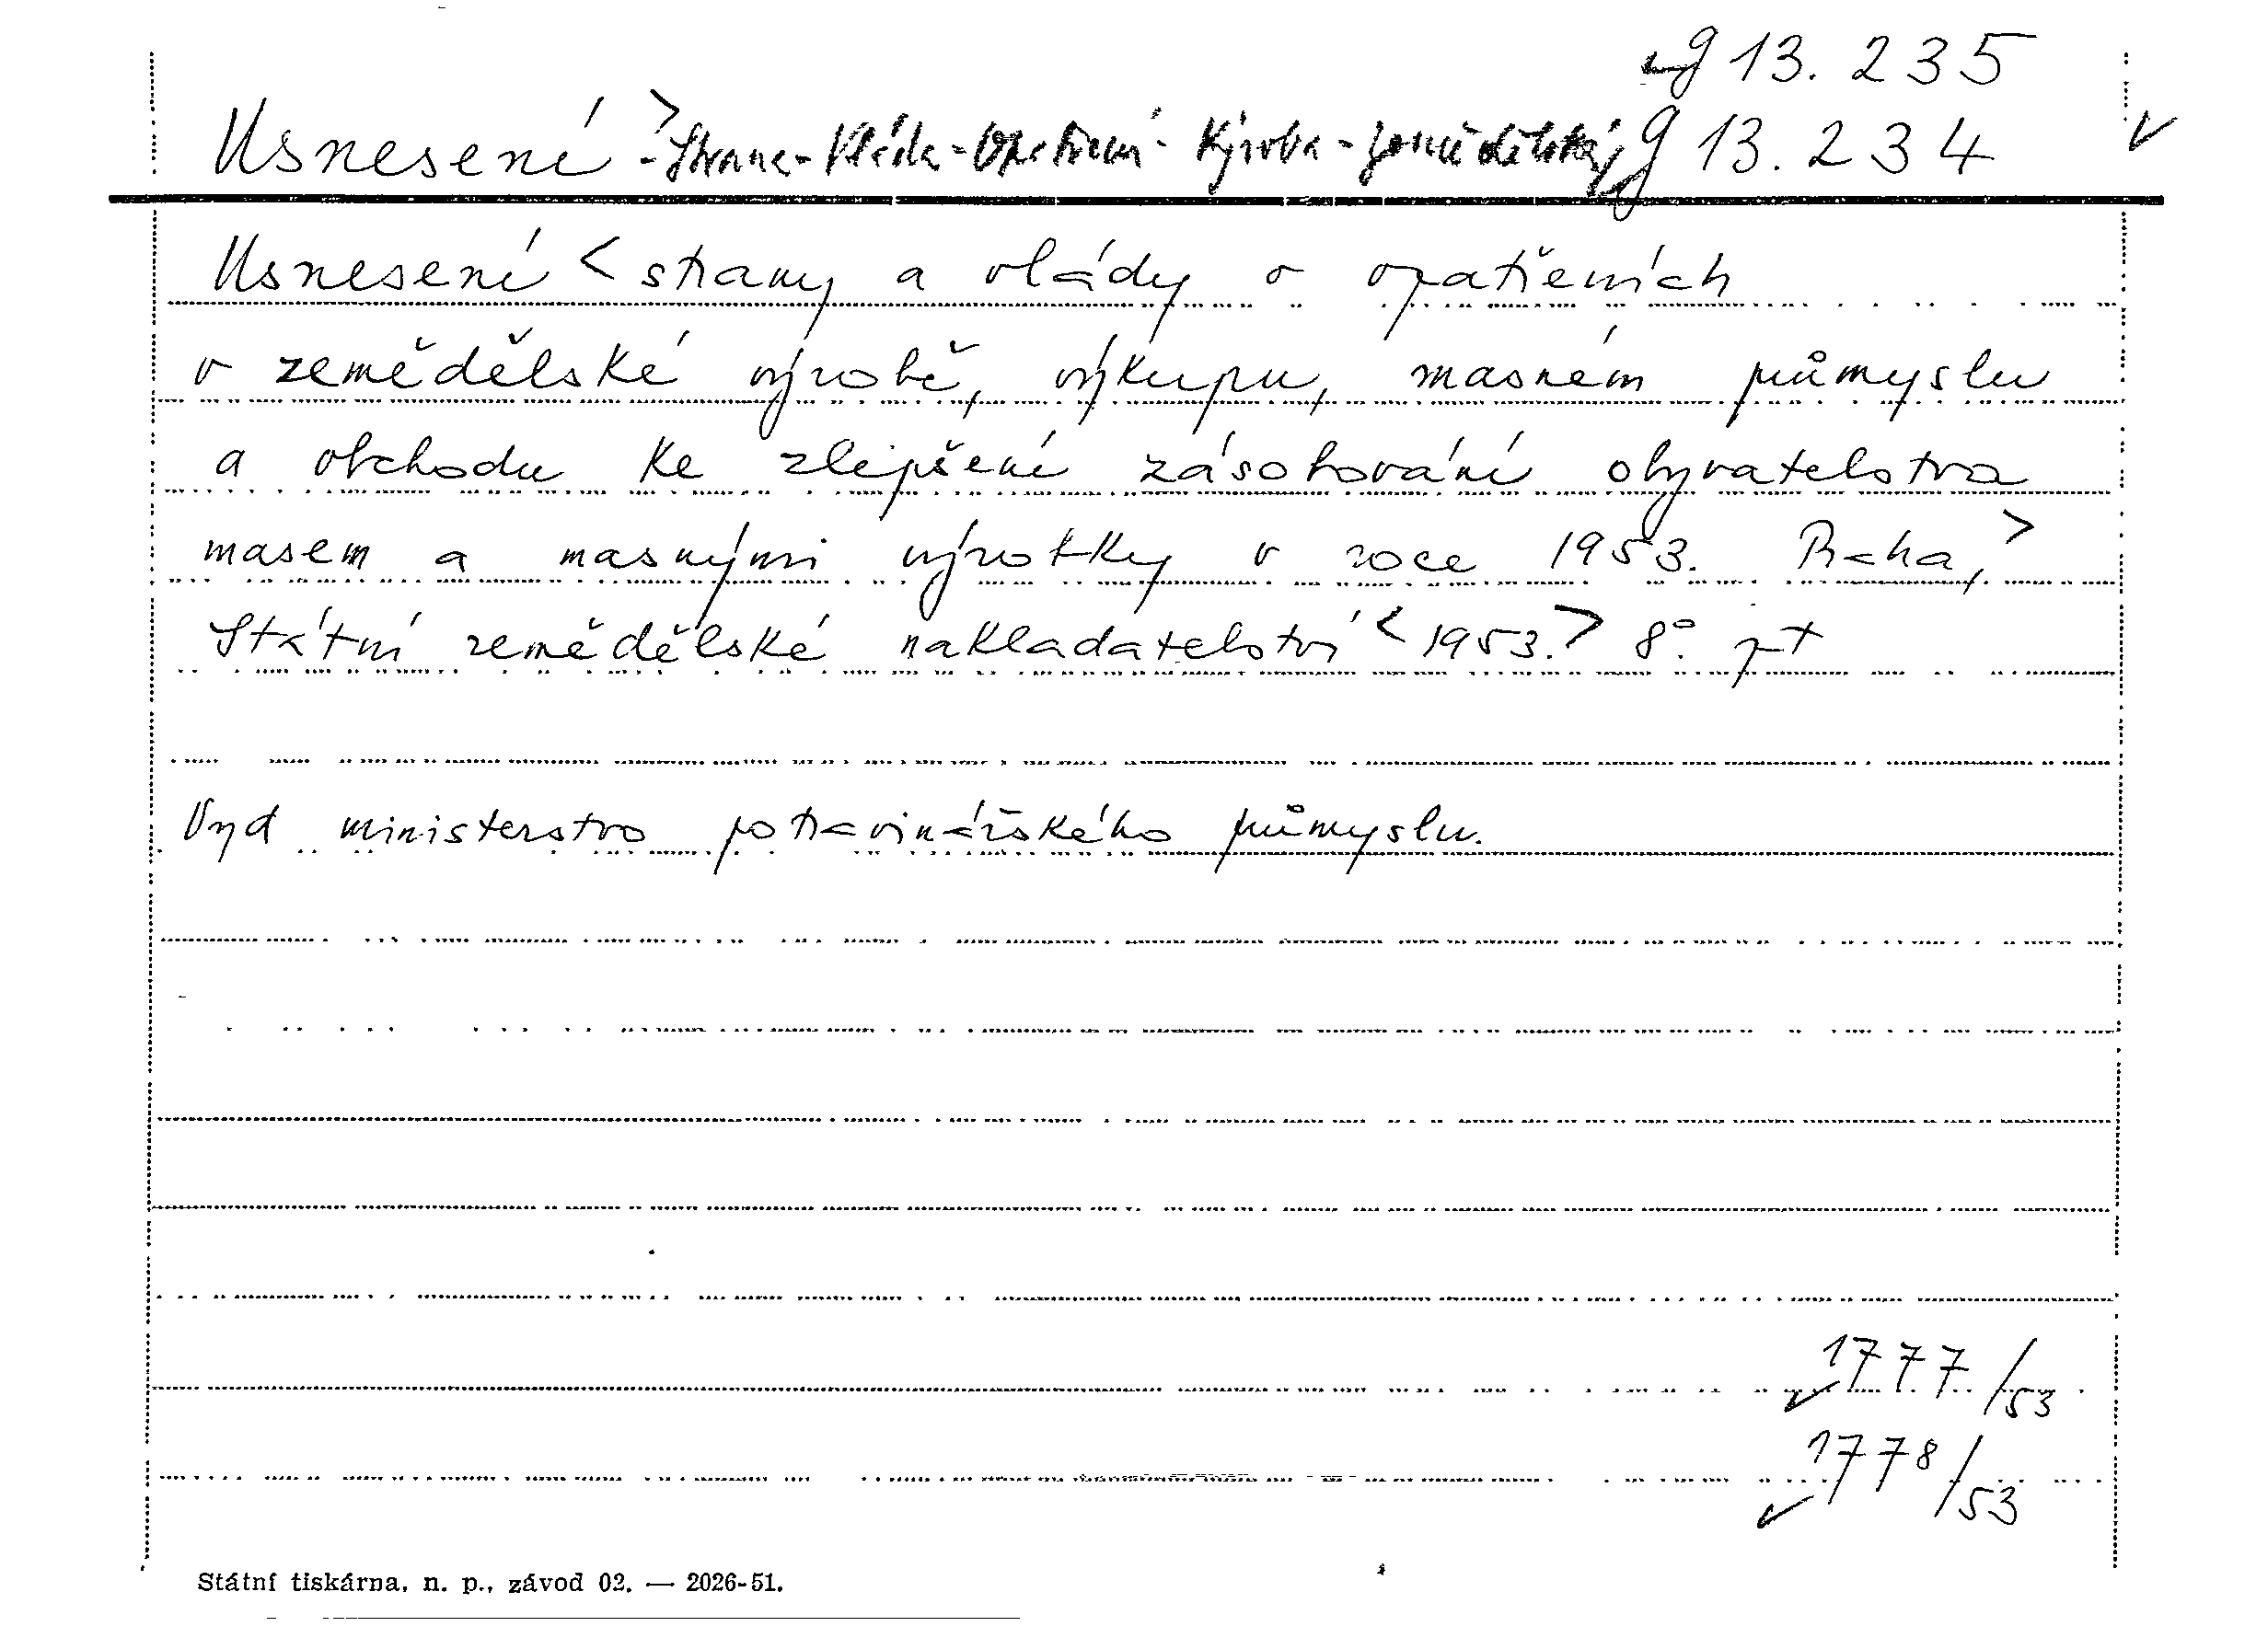 g 13.235
Usnesení - Strana - Vláda - Opatření - Výroba - zemědělská g 13.234
Usnesení < strany a vlády o opatřeních
v zemědělské výrobě, výkupu, masném průmyslu
a obchodu ke zlepšení zásobování obyvatelstva
masem a masnými výrobky v roce 1953. Praha, >
Státní zemědělské nakladatelství < 1953. > 8°. pt
Vyd ministerstvo potravinářského průmyslu.
1777/53
1778/53
Státní tiskárna, n. p., závod 02. — 2026-51.